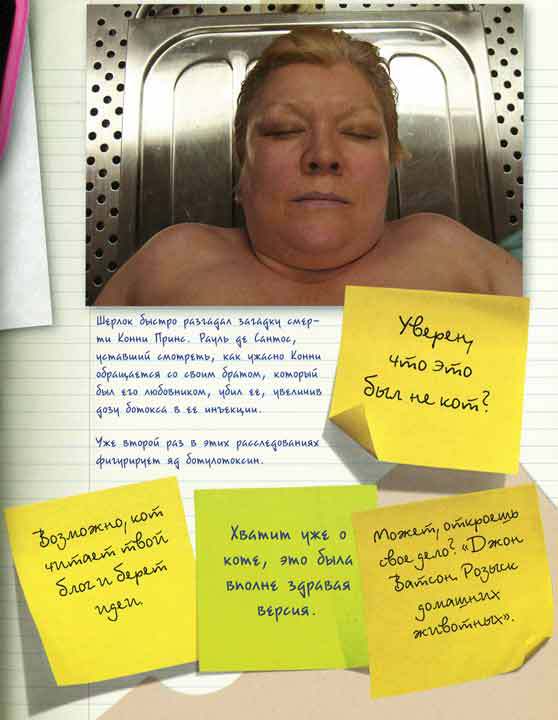 Шерлок быстро разгадал загадку смер-
ти Конни Принс. Рауль де Сантос,
уставший смотреть, как ужасно Конни
обращается со своим братом, который
был его любовником, убил ее, увеличив
дозу ботокса в ее инъекции.
Уже второй раз в этих расследованиях
фигурирует яд ботулотоксин.
Уверен,
что это
был не кот?
Возможно, кот
читает твой
блог и берет
идеи.
Хватит уже о
коте, это была
вполне здравая
версия.
Может, откроешь
свое дело? «Джон
Ватсон. Розыск
домашних
животных».